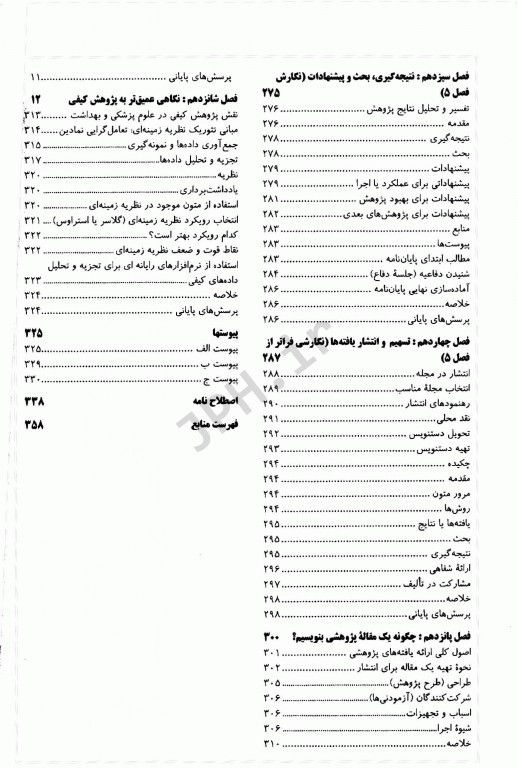 فصل سیزدهم : نتیجه‌گیری، بحث و پیشنهادات (نگارش
فصل ۵) ۲۷۵
تفسیر و تحلیل نتایج پژوهش ........ ۲۷۶
مقدمه ........ ۲۷۶
نتیجه‌گیری ........ ۲۷۸
بحث ........ ۲۷۸
پیشنهادات ........ ۲۷۹
پیشنهاداتی برای عملکرد یا اجرا ........ ۲۷۹
پیشنهادات برای بهبود پژوهش ........ ۲۸۱
پیشنهادات برای پژوهش‌های بعدی ........ ۲۸۲
منابع ........ ۲۸۳
پیوست‌ها ........ ۲۸۳
مطالب ابتدای پایان‌نامه ........ ۲۸۳
شنیدن دفاعیه (جلسهٔ دفاع) ........ ۲۸۴
آماده‌سازی نهایی پایان‌نامه ........ ۲۸۶
خلاصه ........ ۲۸۶
پرسش‌های پایانی ........ ۲۸۶
فصل چهاردهم : تسهیم و انتشار یافته‌ها (نگارشی فراتر از
فصل ۵) ۲۸۷
انتشار در مجله ........ ۲۸۸
انتخاب مجلهٔ مناسب ........ ۲۸۹
رهنمودهای انتشار ........ ۲۹۰
نقد محلی ........ ۲۹۱
تحویل دستنویس ........ ۲۹۲
تهیه دستنویس ........ ۲۹۳
چکیده ........ ۲۹۴
مقدمه ........ ۲۹۴
مرور متون ........ ۲۹۴
روش‌ها ........ ۲۹۴
یافته‌ها یا نتایج ........ ۲۹۵
بحث ........ ۲۹۵
نتیجه‌گیری ........ ۲۹۵
ارائهٔ شفاهی ........ ۲۹۶
مشارکت در تألیف ........ ۲۹۷
خلاصه ........ ۲۹۸
پرسش‌های پایانی ........ ۲۹۸
فصل پانزدهم : چگونه یک مقالهٔ پژوهشی بنویسیم؟ ۳۰۰
اصول کلی ارائه یافته‌های پژوهشی ........ ۳۰۱
نحوهٔ تهیه یک مقاله برای انتشار ........ ۳۰۲
طراحی (طرح پژوهش) ........ ۳۰۵
شرکت‌کنندگان (آزمودنی‌ها) ........ ۳۰۶
اسباب و تجهیزات ........ ۳۰۶
شیوهٔ اجرا ........ ۳۰۶
خلاصه ........ ۳۱۰
پرسش‌های پایانی ........ ۱۱
فصل شانزدهم : نگاهی عمیق‌تر به پژوهش کیفی ۱۲
نقش پژوهش کیفی در علوم پزشکی و بهداشت ........ ۳۱۳
مبانی تئوریک نظریه زمینه‌ای: تعامل‌گرایی نمادین ........ ۳۱۴
جمع‌آوری داده‌ها و نمونه‌گیری ........ ۳۱۵
تجزیه و تحلیل داده‌ها ........ ۳۱۷
نظریه ........ ۳۲۰
یادداشت‌برداری ........ ۳۲۰
استفاده از متون موجود در نظریه زمینه‌ای ........ ۳۲۰
انتخاب رویکرد نظریه زمینه‌ای (گلاسر یا استراوس) ........ ۳۲۱
کدام رویکرد بهتر است؟ ........ ۳۲۲
نقاط قوت و ضعف نظریه زمینه‌ای ........ ۳۲۲
استفاده از نرم‌افزارهای رایانه ای برای تجزیه و تحلیل
داده‌های کیفی ........ ۳۲۳
خلاصه ........ ۳۲۴
پرسش‌های پایانی ........ ۳۲۴
پیوستها ۳۲۵
پیوست الف ........ ۳۲۵
پیوست ب ........ ۳۲۹
پیوست ج ........ ۳۳۰
اصطلاح نامه ۳۳۸
فهرست منابع ۳۵۸
JPH.ir